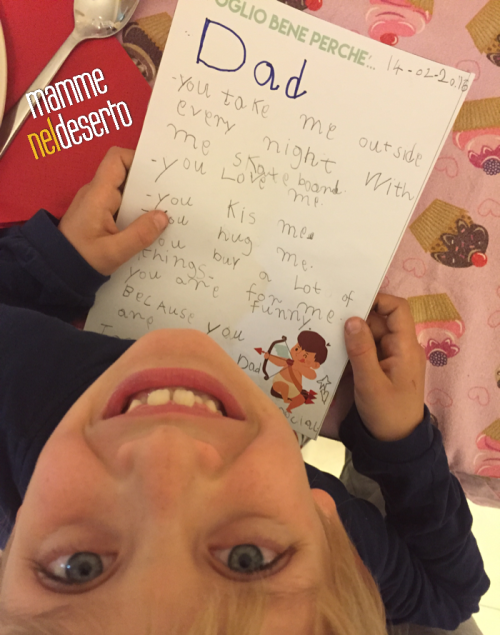 OGLIO BENE PERCHE'...
14-02-2018
Dad
mamme
neldeserto
-you take me outside
every night with
me skateboard.
-you Love me.
-you kis me.
you hug me.
you buy a Lot of
things for me
you are funny
BeCAUSe you
are Dad